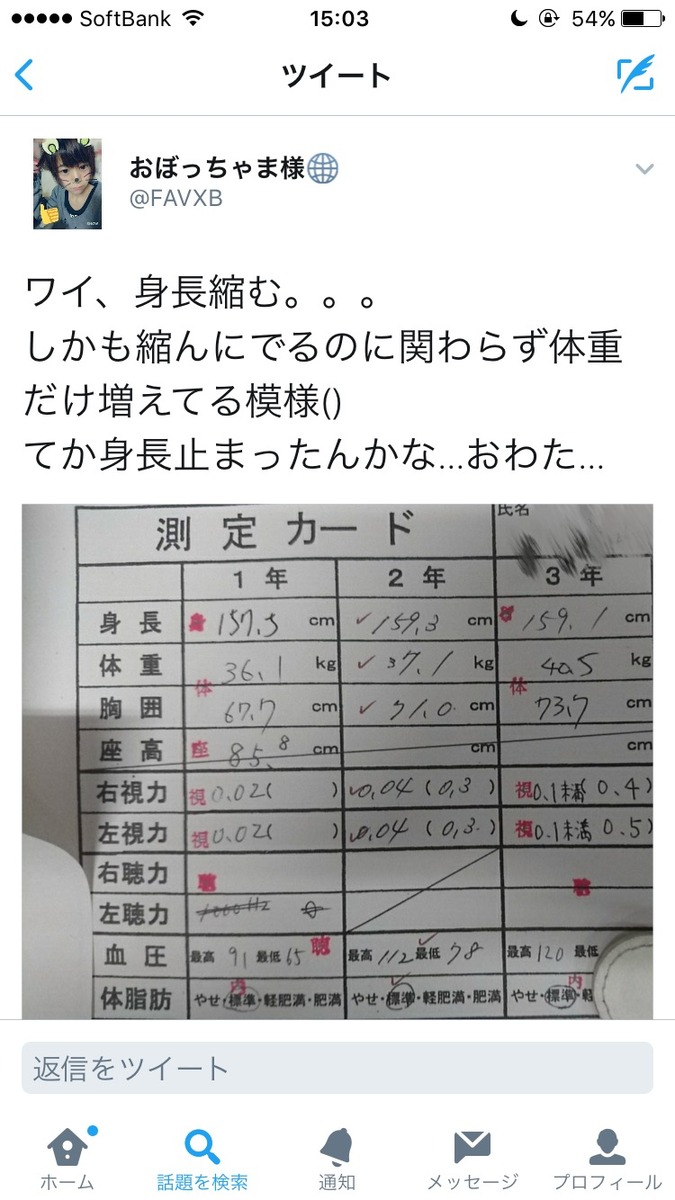 SoftBank 15:03 54%
ツイート
おぼっちゃま様
@FAVXB
ワイ、身長縮む。。。
しかも縮んにでるのに関わらず体重
だけ増えてる模様()
てか身長止まったんかな...おわた...
測定カード 氏名
1年 2年 3年
身長 157.5 cm 159.3 cm 159.1 cm
体重 36.1 kg 37.1 kg 40.5 kg
体 体
胸囲 67.7 cm 71.0 cm 73.7 cm
座高 座 85.8 cm cm cm
右視力 視 0.02( ) 0.04 (0.3) 視 0.1未満 0.4)
左視力 視 0.02( ) 0.04 (0.3) 視 0.1未満 0.5)
右聴力 聴 聴
左聴力 1000Hz
血圧 最高 91 最低 65 聴 最高 112 最低 78 最高 120 最低
内 内
体脂肪 やせ・標準・軽肥満・肥満 やせ・標準・軽肥満・肥満 やせ・標準・軽
返信をツイート
ホーム 話題を検索 通知 メッセージ プロフィール